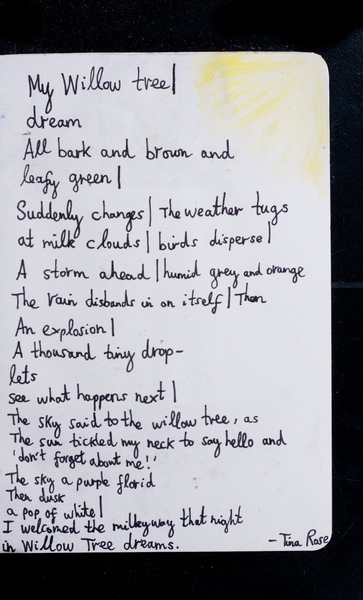 My Willow tree|
dream
All bark and brown and
leafy green|
Suddenly changes| The weather tugs
at milk clouds| birds disperse|
A storm ahead| humid grey and orange
The rain disbands in on itself| Then
An explosion|
A thousand tiny drop-
lets
see what happens next|
The sky said to the willow tree, as
The sun tickled my neck to say hello and
'don't forget about me!'
The sky a purple florid
Then dusk
a pop of white|
I welcomed the milkyway that night
in Willow Tree dreams.
- Tina Rose